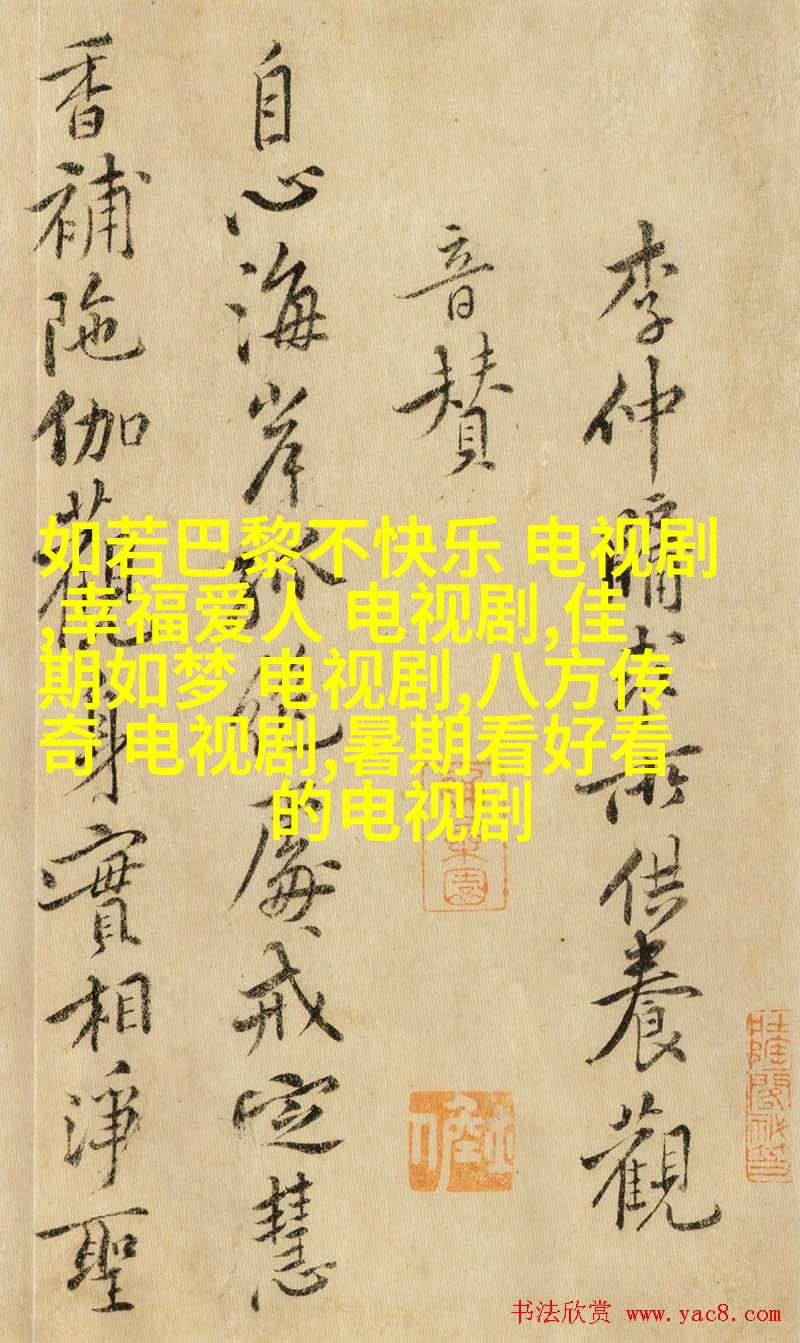 李仲牖本所供養觀
音贊
自心海岸孤絶處戒定慧
香補陁伽蘿身實相淨聖
如若巴黎不快乐 电视剧
,幸福爱人 电视剧,佳
期如梦 电视剧,八方传
奇 电视剧,暑期看好看
的电视剧
书法欣赏 www.yac8.com